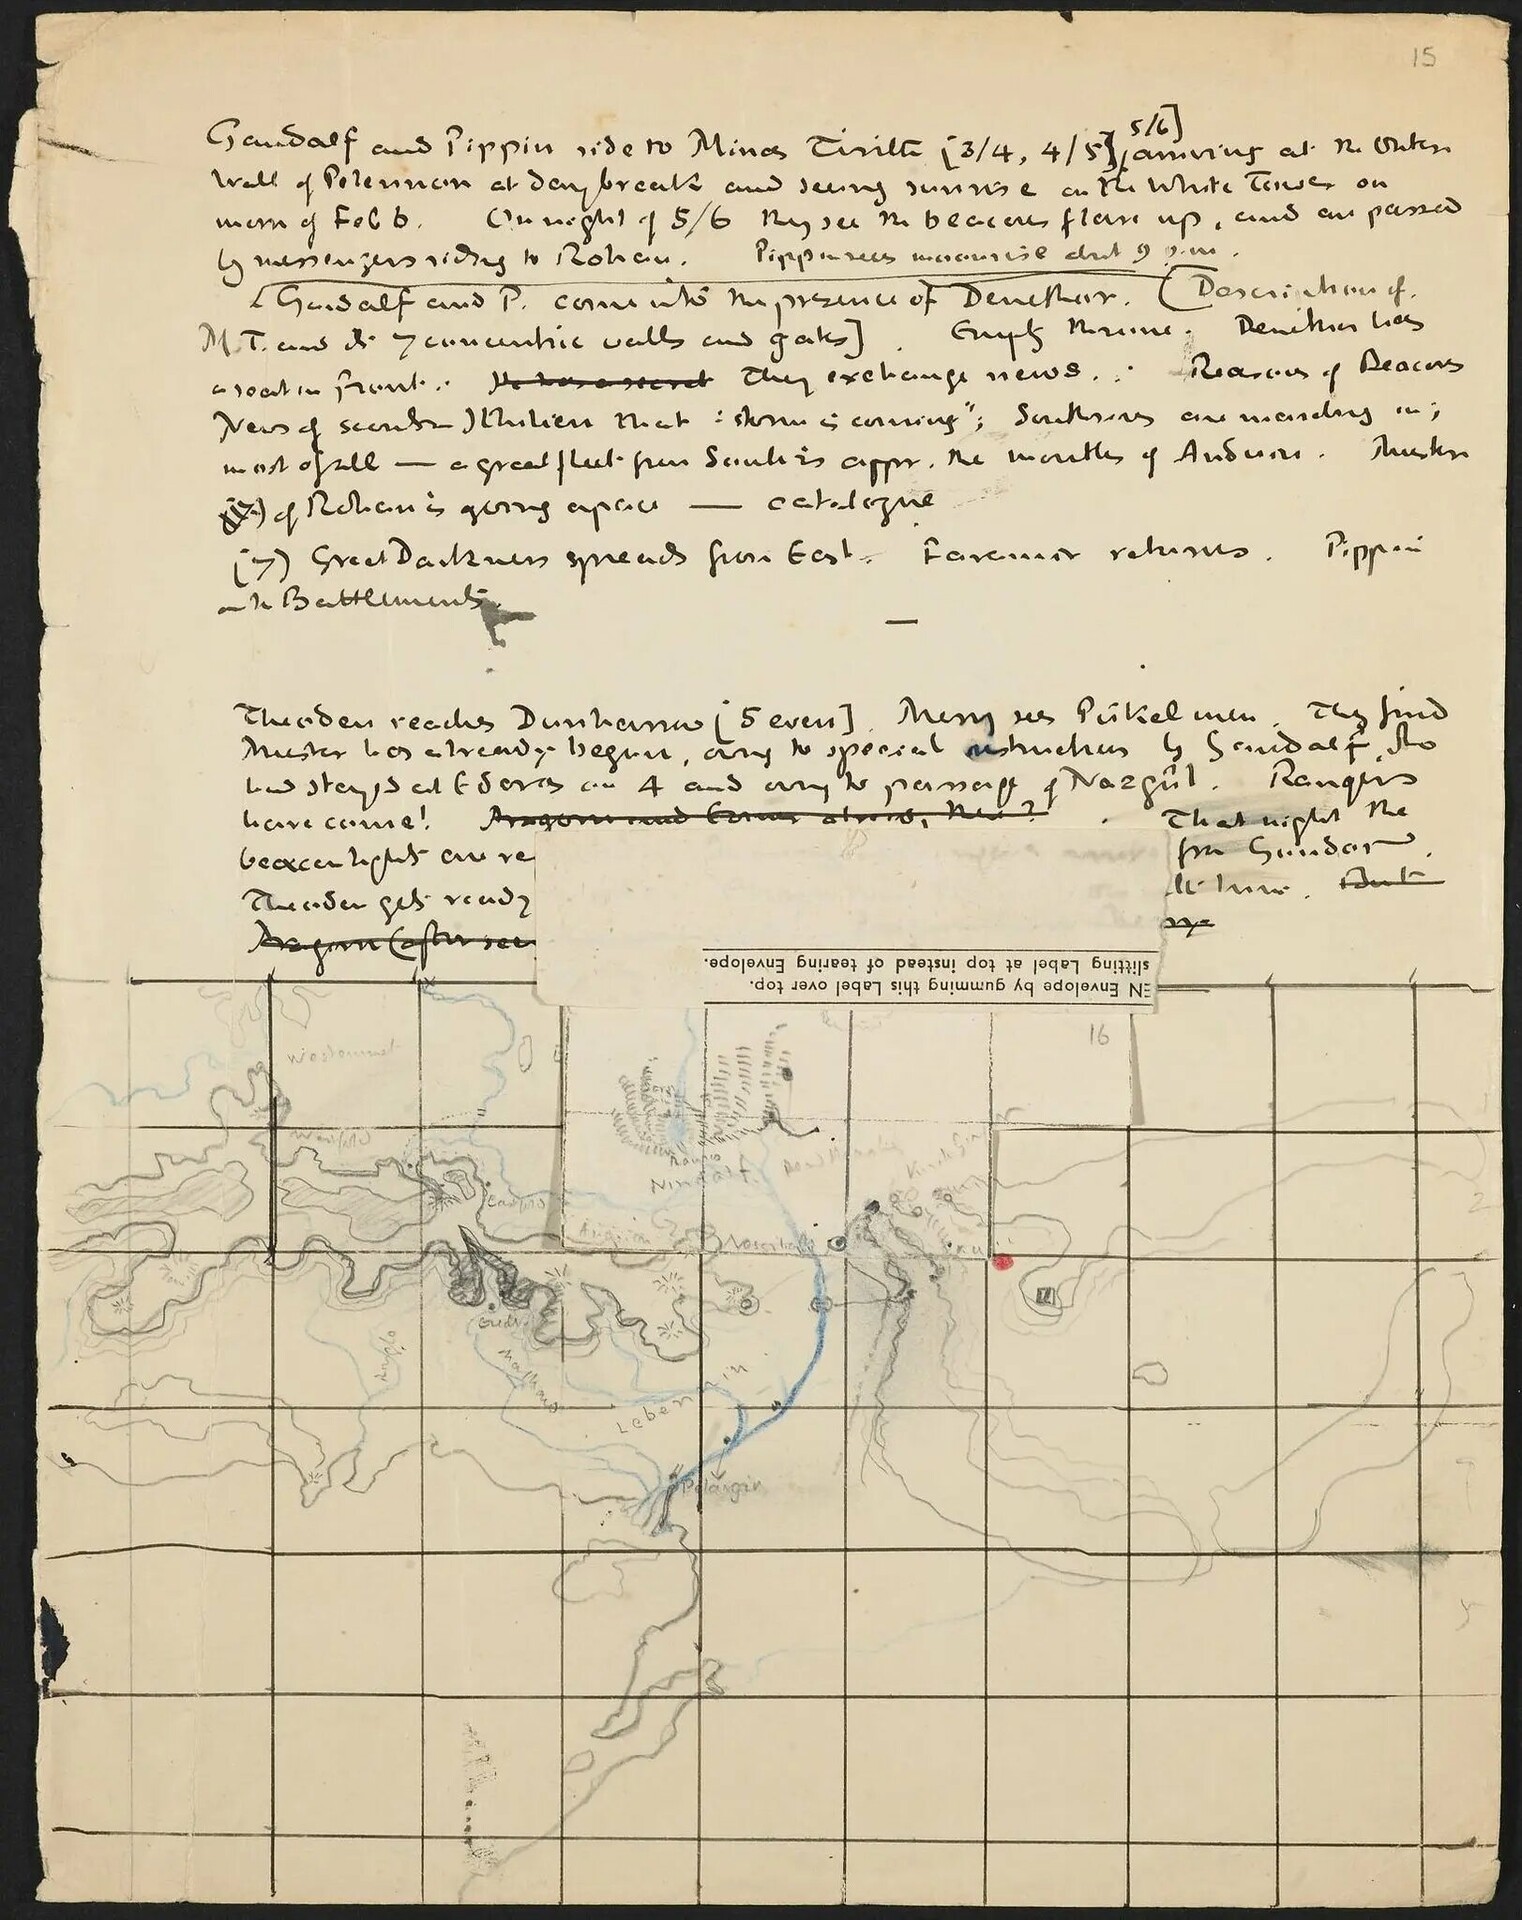 15
Gandalf and Pippin ride to Minas Tirith [3/4, 4/5, 5/6] arriving at the Outer
Wall of Pelennor at daybreak and seeing sunrise on the White Tower on
morn of Feb 6. On night of 5/6 they see the beacons flare up, and are passed
by messengers riding to Rohan. Pippin sees moonrise about 9 p.m.
Gandalf and P. come into the presence of Denethor. (Description of
M.T. and its 7 concentric walls and gates]. Empty throne. Denethor has
a seat in front. They exchange news. Reasons of Beacons
News of scouts in Ithilien that 'storm is coming'; Southrons are marching in;
most of all — a great fleet from South is appr. the mouths of Anduin. Muster
of Rohan is going apace — catalogue
(7) Great Darkness spreads from East. Faramir returns. Pippin
on the Battlements.
—
Theoden reaches Dunharrow [5 even]. Merry sees Púkel men. They find
Muster has already begun, owing to special instructions by Gandalf, who
had stayed at Edoras on 4 and owing to passage of Nazgûl. Rangers
have come! Aragorn and Eomer That night the
beacon lights are re from Gondor.
Theoden gets ready But
Aragorn (after see
EN Envelope by gumming this Label over top.
slitting Label at top instead of tearing Envelope.
16
Westemnet
Westfold
Eastfold
Rauros
Nindalf
Dead Marshes
Anórien
Ered
Lebennin
Pelargir